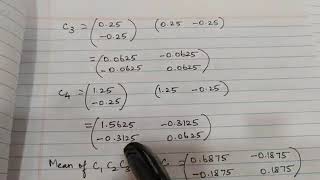 C3 = (0.25 (0.25 -0.25)
-0.25)
= (0.0625 -0.0625
-0.0625 0.0625)
C4 = (1.25 (1.25 -0.25)
-0.25)
= (1.5625 -0.3125
-0.3125 0.0625)
Mean of C1 C2 C3 = (0.6875 -0.1875
-0.1875 0.1875)